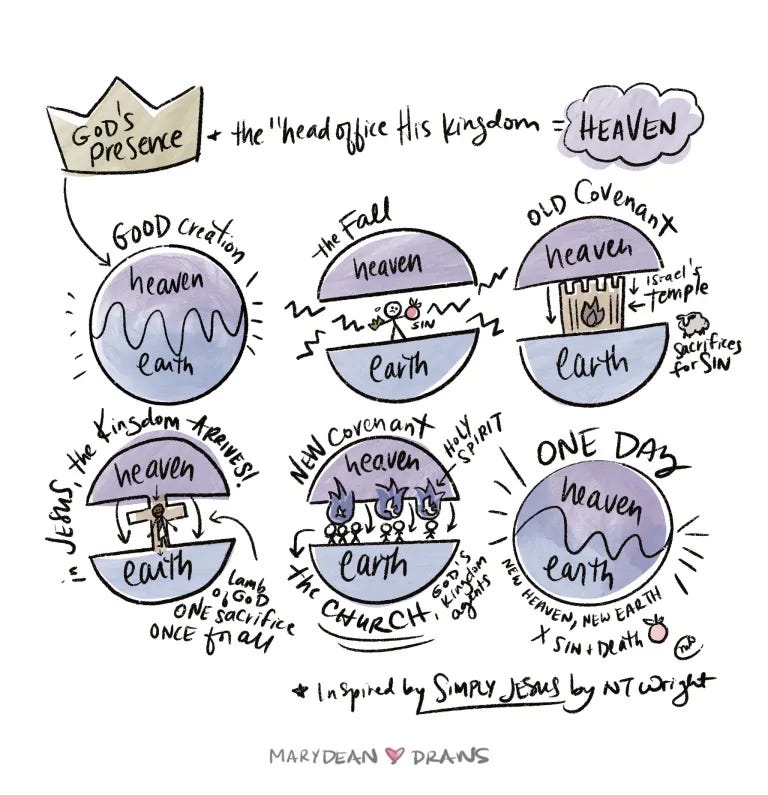 GOD'S
presence
+ the "head office His kingdom = HEAVEN
GOOD creation
heaven
earth
the Fall
heaven
SIN
earth
OLD Covenant
heaven
Israel's
temple
earth
sacrifices
for SIN
in JESUS, the Kingdom ARRIVES!
heaven
earth
Lamb
of GOD
ONE sacrifice
ONCE for all
NEW Covenant
HOLY
SPIRIT
heaven
earth
the CHURCH,
GOD'S
Kingdom
agents
ONE DAY
heaven
earth
NEW HEAVEN, NEW EARTH
X SIN + Death
* Inspired by SIMPLY JESUS by NT Wright
MARYDEAN DRAWS